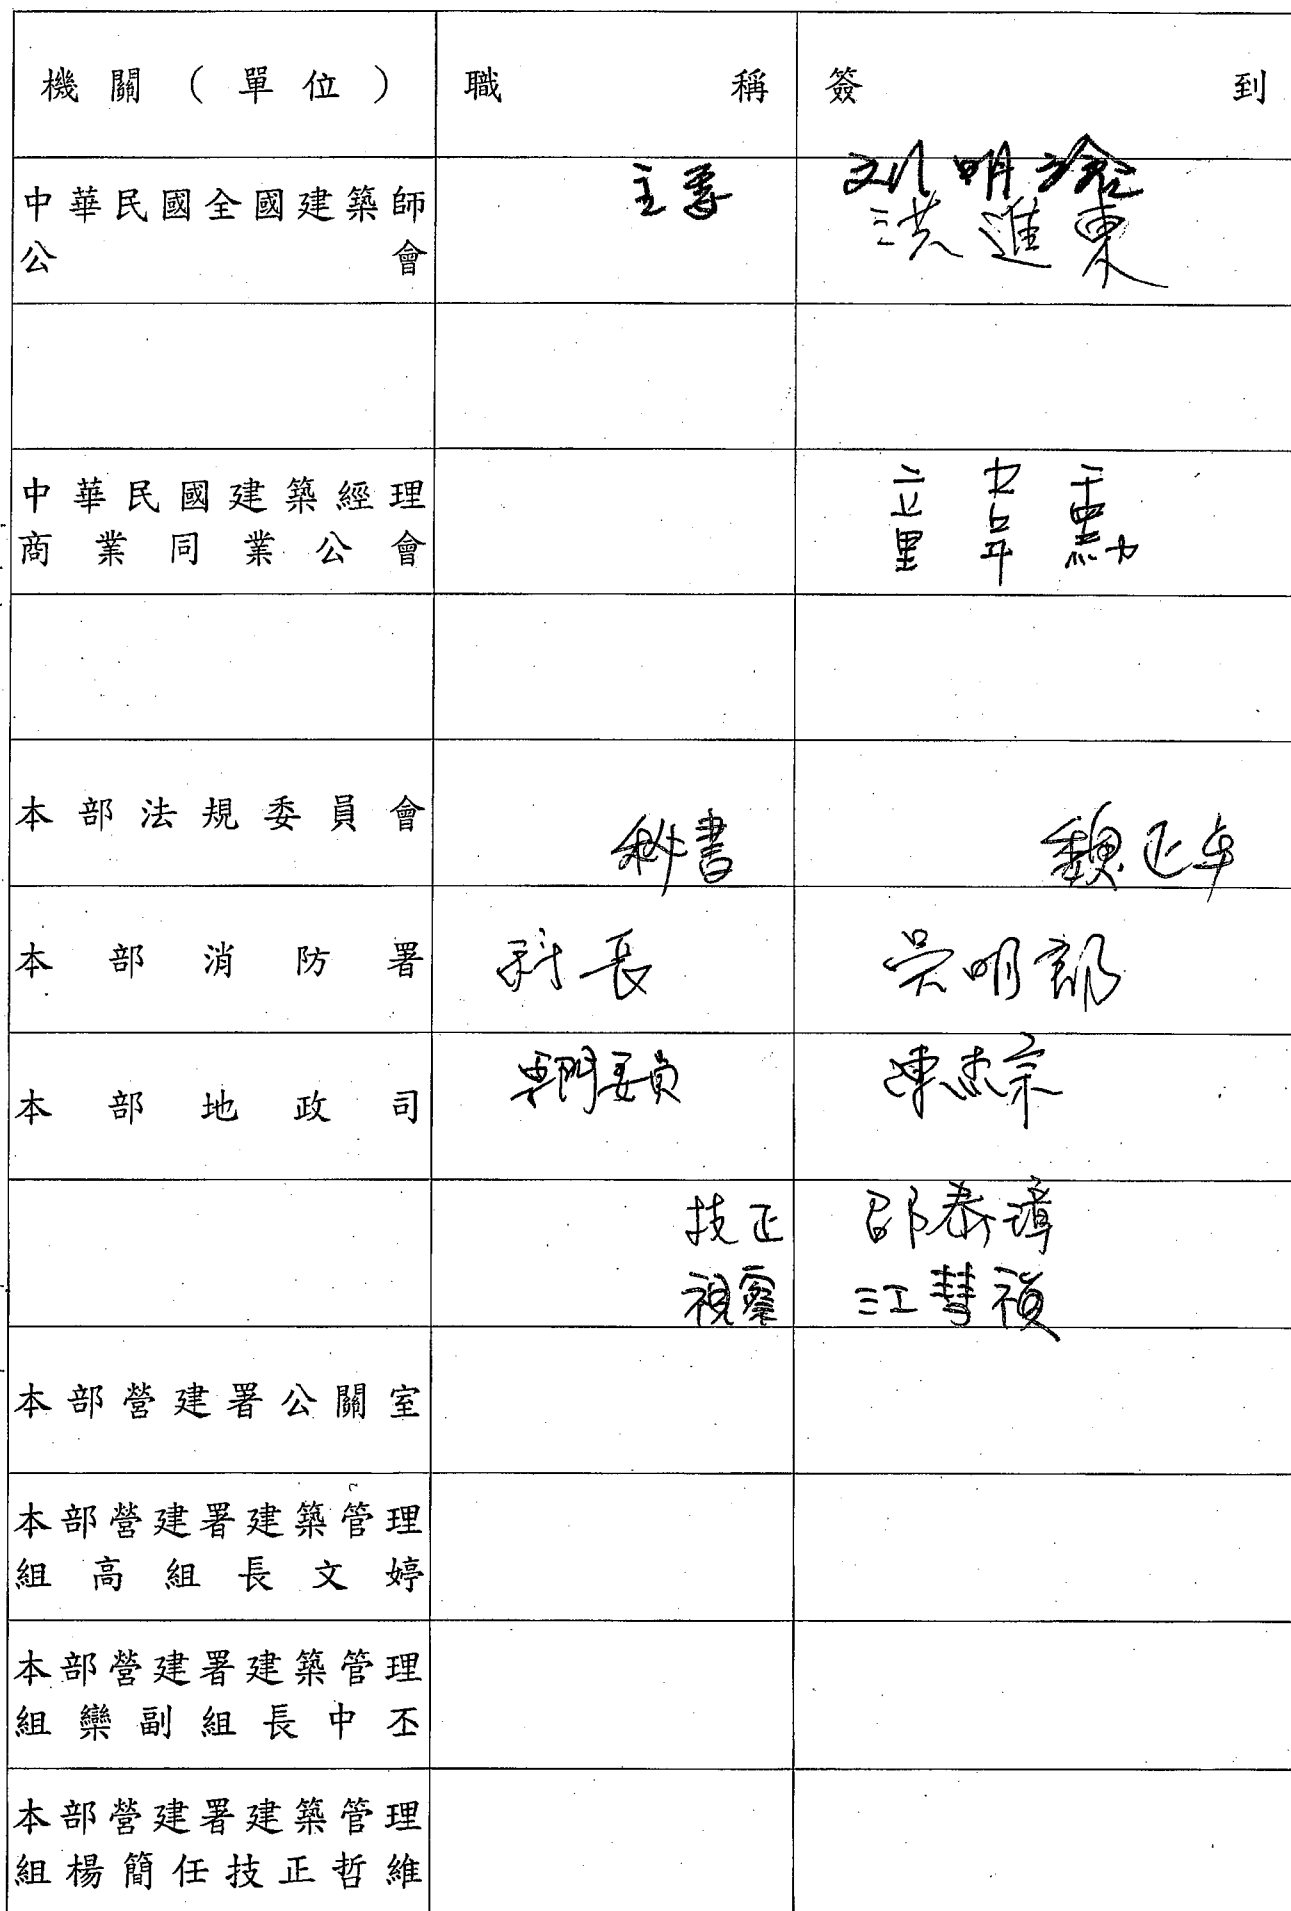 機關(單位) 職稱 簽到
中華民國全國建築師 主委 刘明滄
公會 洪進東
中華民國建築經理
商業同業公會
本部法規委員會 秘書 魏正卓
本部消防署 科長 吳明郎
本部地政司 專門委員 陳杰宗
技正 邵泰璋
視察 江彗禎
本部營建署公關室
本部營建署建築管理
組高組長文婷
本部營建署建築管理
組欒副組長中丕
本部營建署建築管理
組楊簡任技正哲維